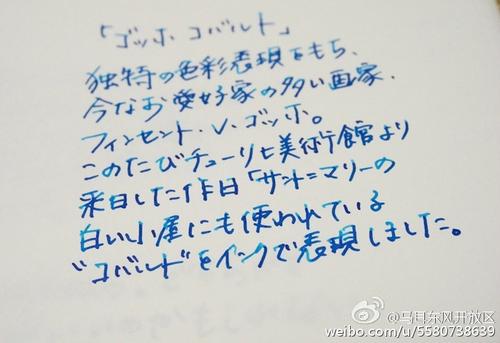 「ゴッホ コバルト」
独特の色彩表現をもち、
今なお愛好家の多い画家、
フィンセント・V・ゴッホ。
このたびチューリヒ美術館より
来日した作日「サント=マリーの
白い小屋にも使われている
"コバルト"をインクで表現しました。
@乌冃东风开放区
weibo.com/u/5580738639